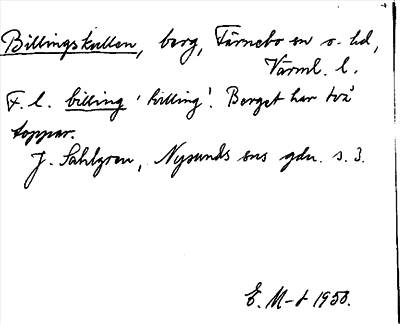 Billingskullen, berg, Färnebo sn o. hd,
Värml. l.
F. l. billing 'tvilling'. Berget har två
toppar.
J. Sahlgren, Nysunds sns gdn. s. 3.
E. M-t 1950.